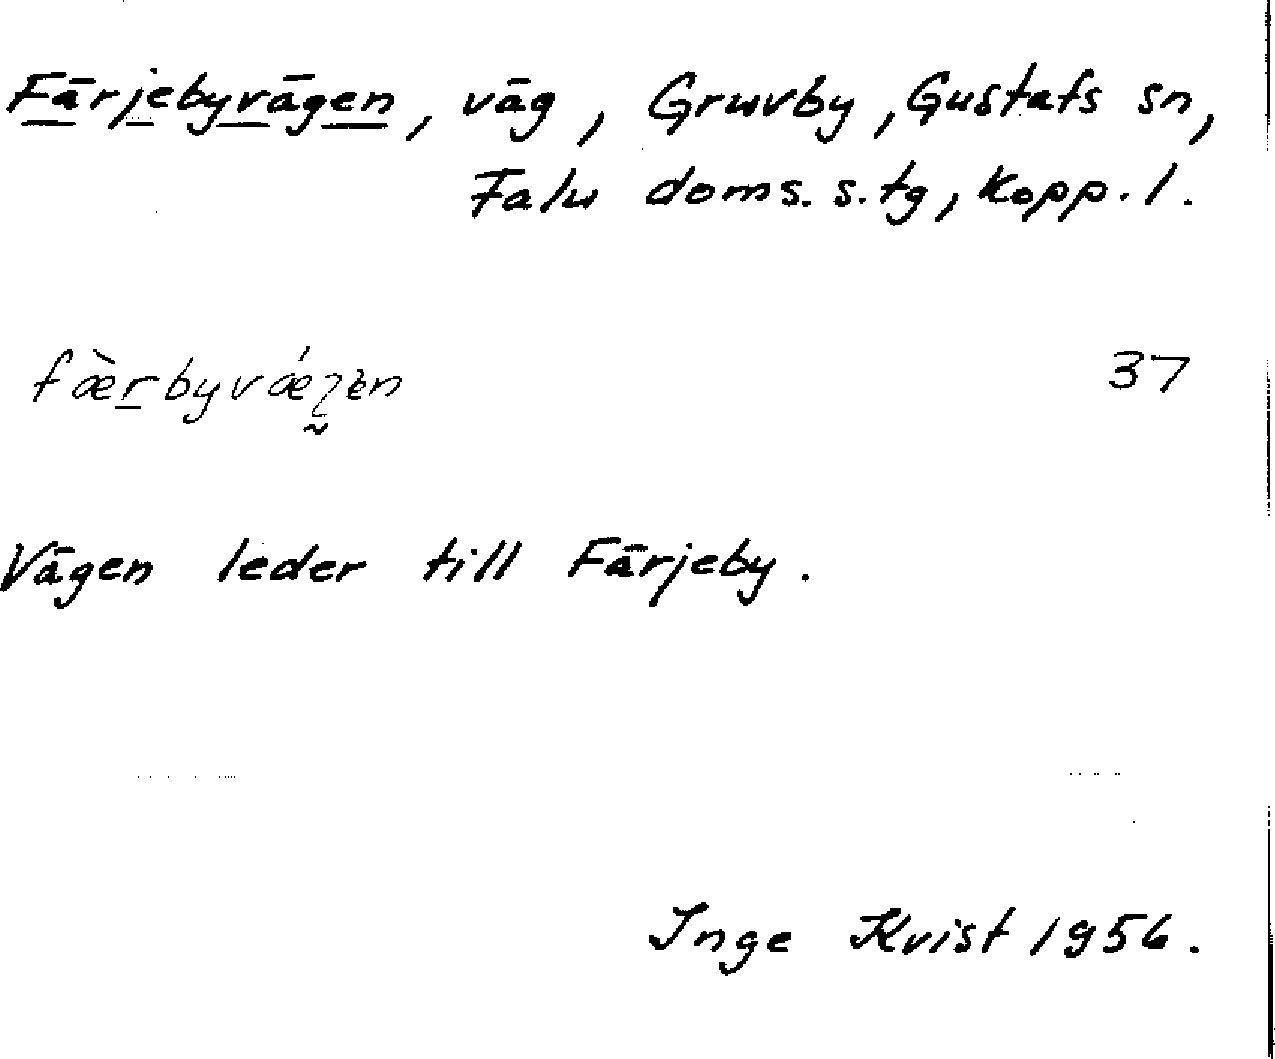 Färjebyvägen, väg, Gruvby, Gustafs sn,
Falu doms. s. tg, Kopp. l.
37
Vägen leder till Färjeby.
Inge Kvist 1956.